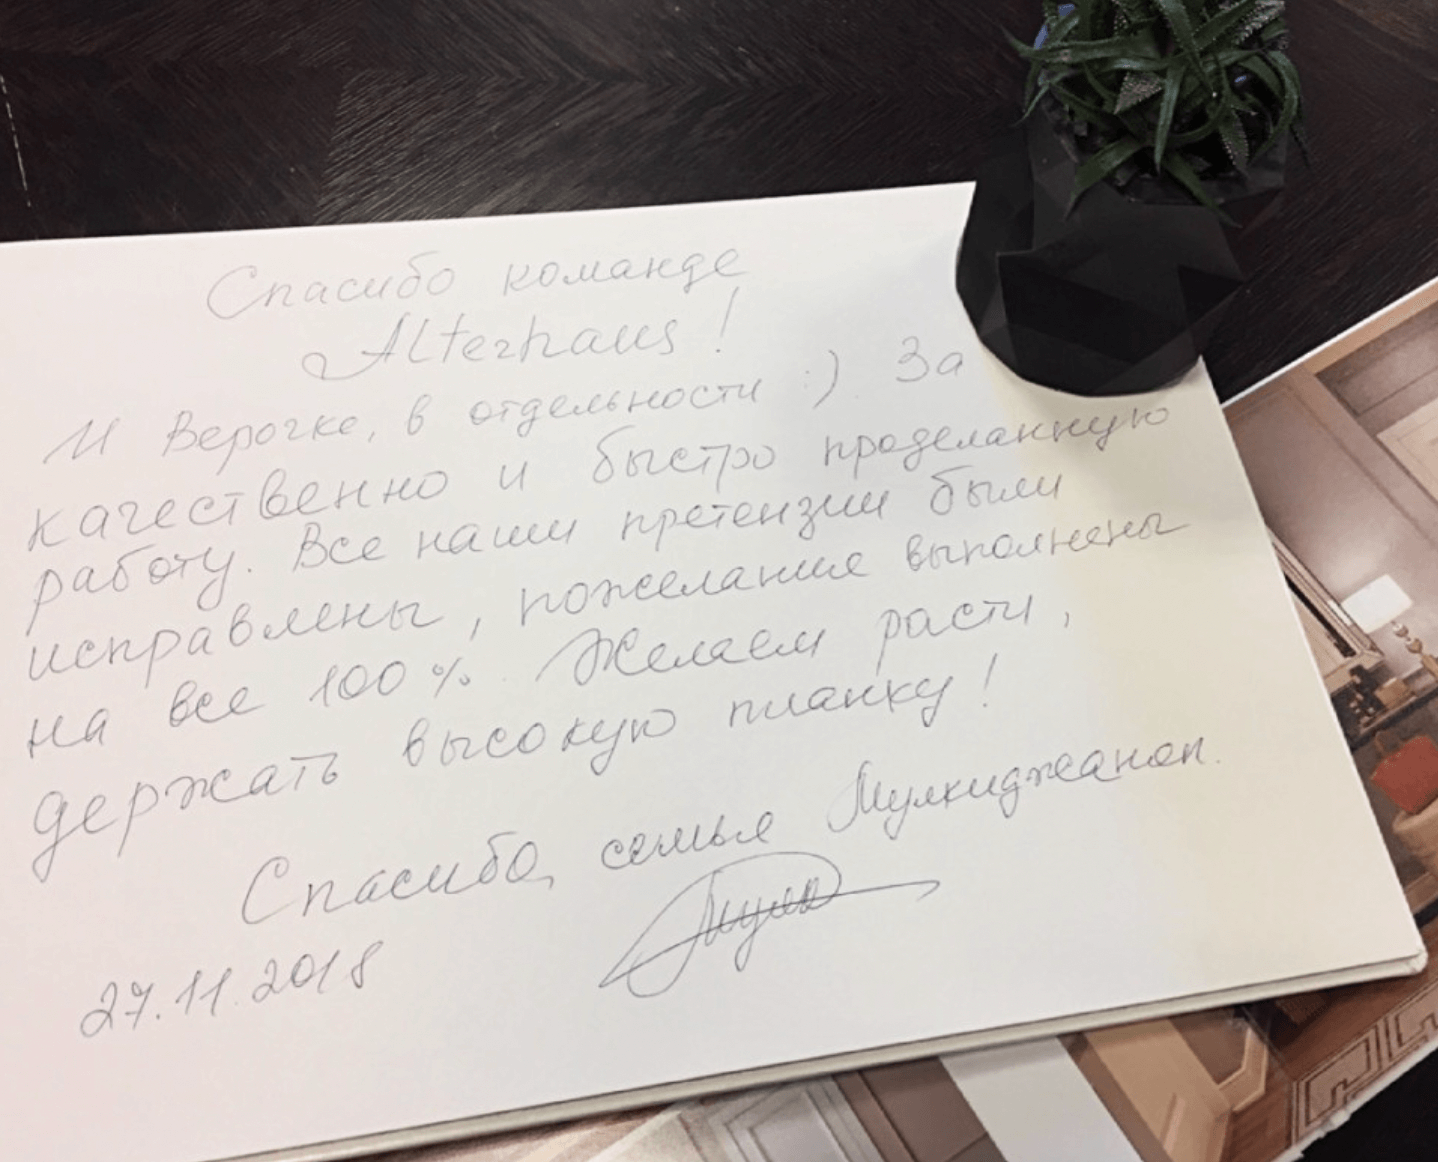 Спасибо команде
Alterhaus!
И Верочке, в отдельности :) За
качественно и быстро проделанную
работу. Все наши претензии были
исправлены, пожелание выполнены
на все 100%. Желаем расти,
держать высокую планку!
Спасибо, семья
27.11.2018